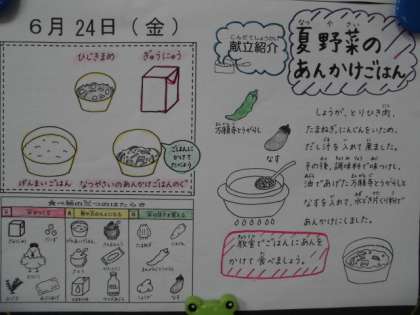 6月24日(金)
ひじきまめ
ぎゅうにゅう
ごはんに
かけて
たべよう
げんまいごはん
なつやさいのあんかけごはんのぐ
こんだてしょうかい
献立紹介
なつやさい
夏野菜の
あんかけごはん
万願寺とうがらし
なす
しょうが、とりひき肉、
たまねぎ、にんじんをいため、
だし汁を入れて煮ました。
その後、調味料で味つけし、
油であげた万願寺とうがらしと
なすを入れて、水どき片くり粉で
あんかけにしました。
教室でごはんにあんを
かけて食べましょう。